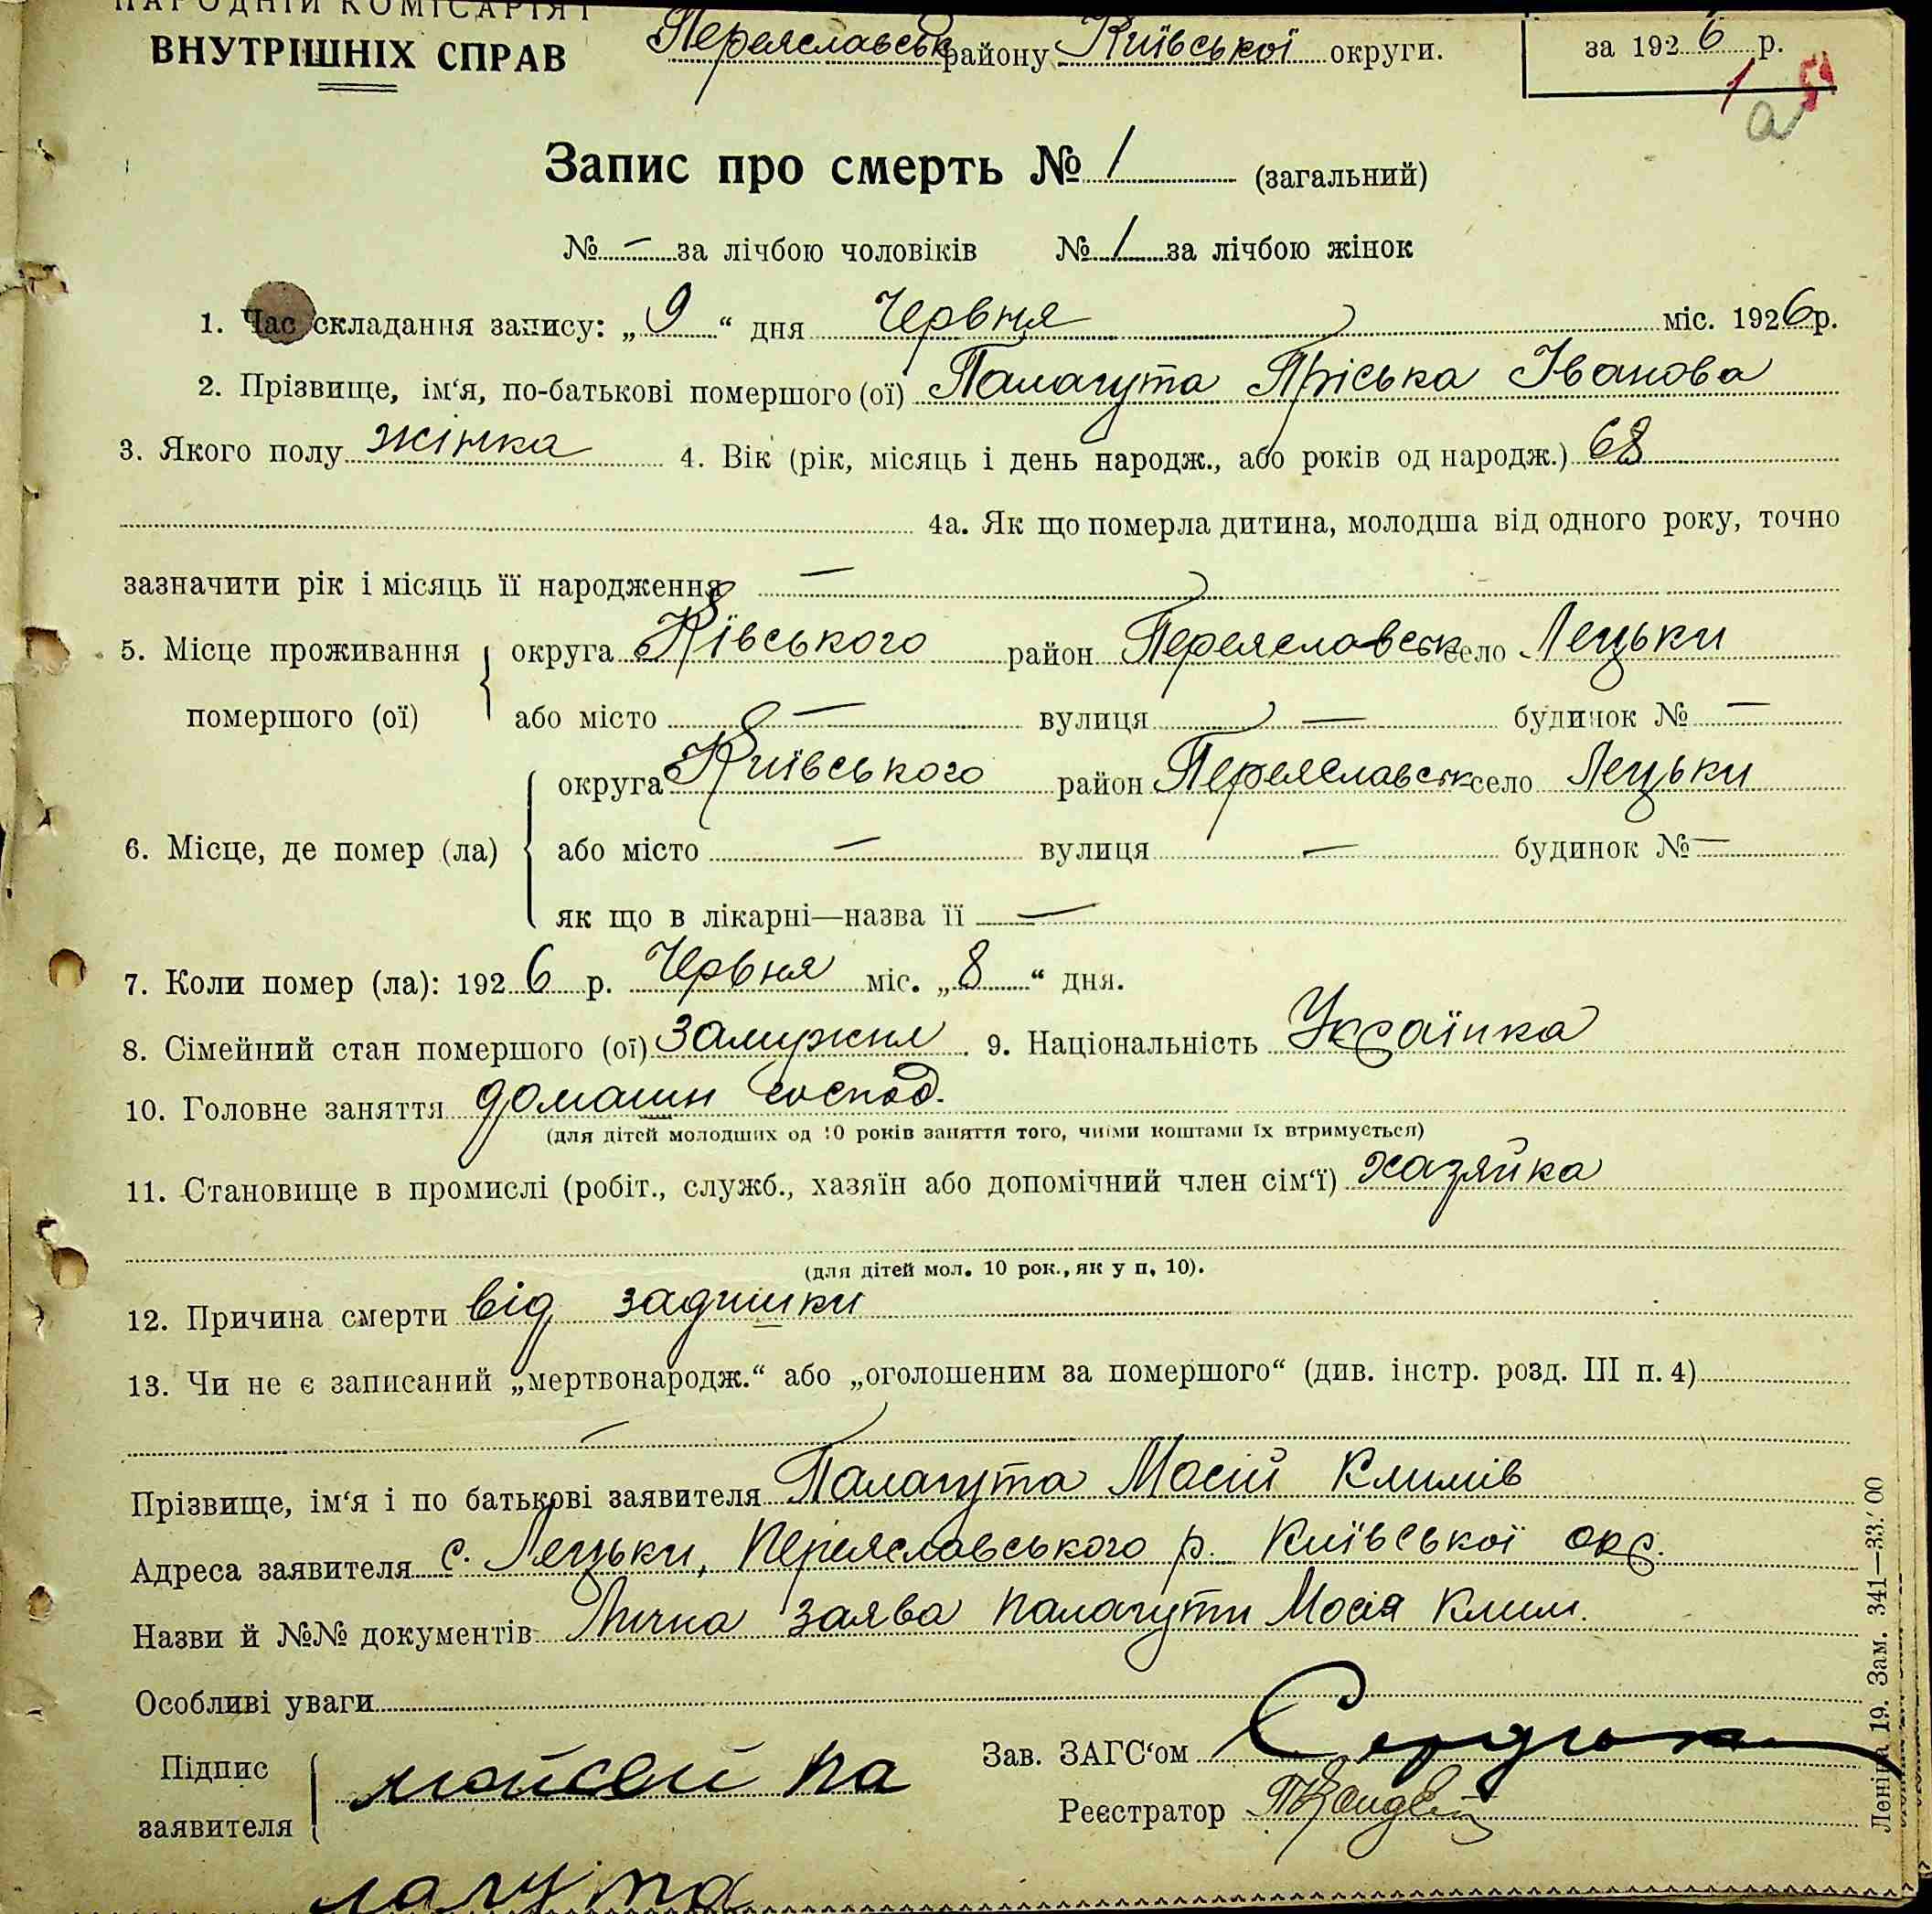 НАРОДНІЙ КОМІСАРІЯТ
ВНУТРІШНІХ СПРАВ Переяславськ району Київської округи. за 1926 р.
1 а
Запис про смерть № 1 (загальний)
№ — за лічбою чоловіків № 1 за лічбою жінок
1. Час складання запису: „9“ дня Червня міс. 1926 р.
2. Прізвище, ім‘я, по-батькові помершого (ої) Палагута Пріська Іванова
3. Якого полу жінка 4. Вік (рік, місяць і день народж., або років од народж.) 68
4а. Як що померла дитина, молодша від одного року, точно
зазначити рік і місяць її народження —
5. Місце проживання округа Ківського район Переяславськ село Лецьки
помершого (ої) або місто — вулиця — будинок № —
округа Київського район Переяславськ село Лецьки
6. Місце, де помер (ла) або місто — вулиця — будинок № —
як що в лікарні—назва її —
7. Коли помер (ла): 1926 р. Червня міс. „8“ дня.
8. Сімейний стан помершого (ої) замужня 9. Національність Українка
10. Головне заняття домашн господ.
(для дітей молодших од 10 років заняття того, чиїми коштами їх втримується)
11. Становище в промислі (робіт., служб., хазяїн або допомічний член сім‘ї) хазяйка
(для дітей мол. 10 рок., як у п. 10).
12. Причина смерти від задишки
13. Чи не є записаний „мертвонародж.“ або „оголошеним за помершого“ (див. інстр. розд. III п. 4)
—
Прізвище, ім‘я і по батькові заявителя Палагута Мосій Климів
Адреса заявителя с. Лецьки, Переяславського р. Київської окр.
Назви й №№ документів Лична заява Палагути Мосія Клим.
Особливі уваги
Підпис заявителя мойсей па
лагута
Зав. ЗАГС‘ом Сердюк
Реєстратор
Леніна 19. Зам. 341—33.'00